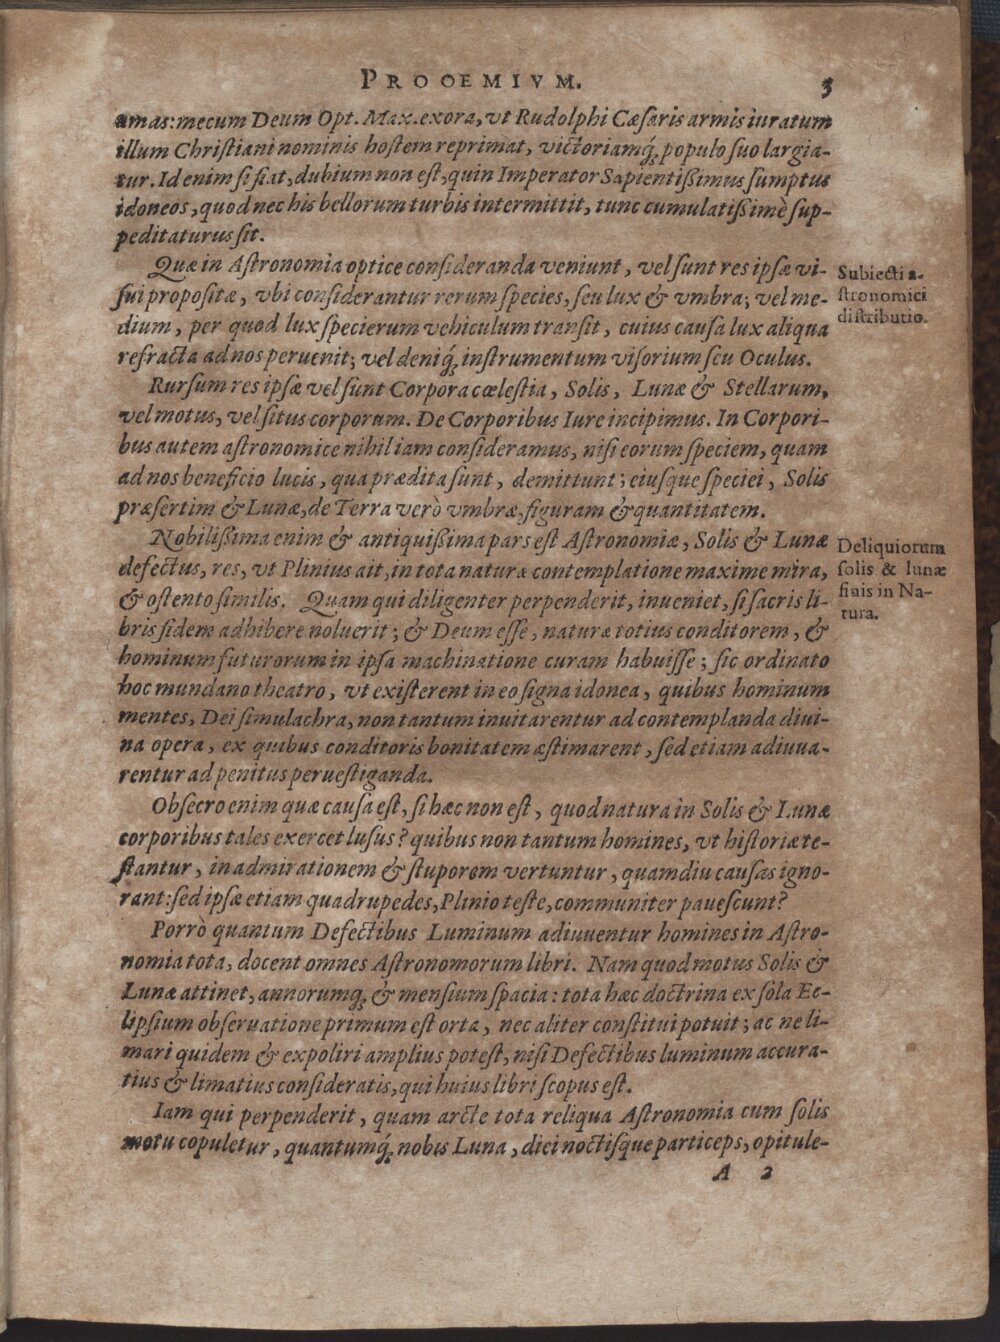 PROOEMIVM. 3
amas: mecum Deum Opt. Max. exora, vt Rudolphi Cæsaris armis iuratum
illum Christiani nominis hostem reprimat, victoriamq́; populo suo largia-
tur. Id enim si fiat, dubium non est, quin Imperator Sapientißimus sumptus
idoneos, quod nec his bellorum turbis intermittit, tunc cumulatißimè sup-
peditaturus sit.
Quæ in Astronomia optice consideranda veniunt, vel sunt res ipsæ vi-
sui propositæ, vbi considerantur rerum species, seu lux & vmbra; vel me-
dium, per quod lux specierum vehiculum transit, cuius causa lux aliqua
refracta ad nos peruenit; vel deniq́; instrumentum visorium seu Oculus.
Subiecti a-
stronomici
distributio.
Rursum res ipsæ vel sunt Corpora cœlestia, Solis, Lunæ & Stellarum,
vel motus, vel situs corporum. De Corporibus Iure incipimus. In Corpori-
bus autem astronomice nihil iam consideramus, nisi eorum speciem, quam
ad nos beneficio lucis, qua prædita sunt, demittunt; eiusque speciei, Solis
præsertim & Lunæ, de Terra verò vmbræ, figuram & quantitatem.
Nobilißima enim & antiquißima pars est Astronomiæ, Solis & Lunæ
defectus, res, vt Plinius ait, in tota naturæ contemplatione maxime mira,
& ostento similis. Quam qui diligenter perpenderit, inueniet, si sacris li-
bris fidem adhibere noluerit; & Deum esse, naturæ totius conditorem, &
hominum futurorum in ipsa machinatione curam habuisse; sic ordinato
hoc mundano theatro, vt existerent in eo signa idonea, quibus hominum
mentes, Dei simulachra, non tantum inuitarentur ad contemplanda diui-
na opera, ex quibus conditoris bonitatem æstimarent, sed etiam adiuua-
rentur ad penitus peruestiganda.
Deliquiorum
solis & lunæ
finis in Na-
tura.
Obsecro enim quæ causa est, si hæc non est, quod natura in Solis & Lunæ
corporibus tales exercet lusus? quibus non tantum homines, vt historiæ te-
stantur, in admirationem & stuporem vertuntur, quamdiu causas igno-
rant: sed ipsæ etiam quadrupedes, Plinio teste, communiter pauescunt?
Porrò quantum Defectibus Luminum adiuuentur homines in Astro-
nomia tota, docent omnes Astronomorum libri. Nam quod motus Solis &
Lunæ attinet, annorumq́; & mensium spacia: tota hæc doctrina ex sola Ec-
lipsium obseruatione primum est orta, nec aliter constitui potuit; ac ne li-
mari quidem & expoliri amplius potest, nisi Defectibus luminum accura-
tius & limatius consideratis, qui huius libri scopus est.
Iam qui perpenderit, quam arcte tota reliqua Astronomia cum solis
motu copuletur, quantumq́; nobis Luna, diei noctisque particeps, opitule-
A 2